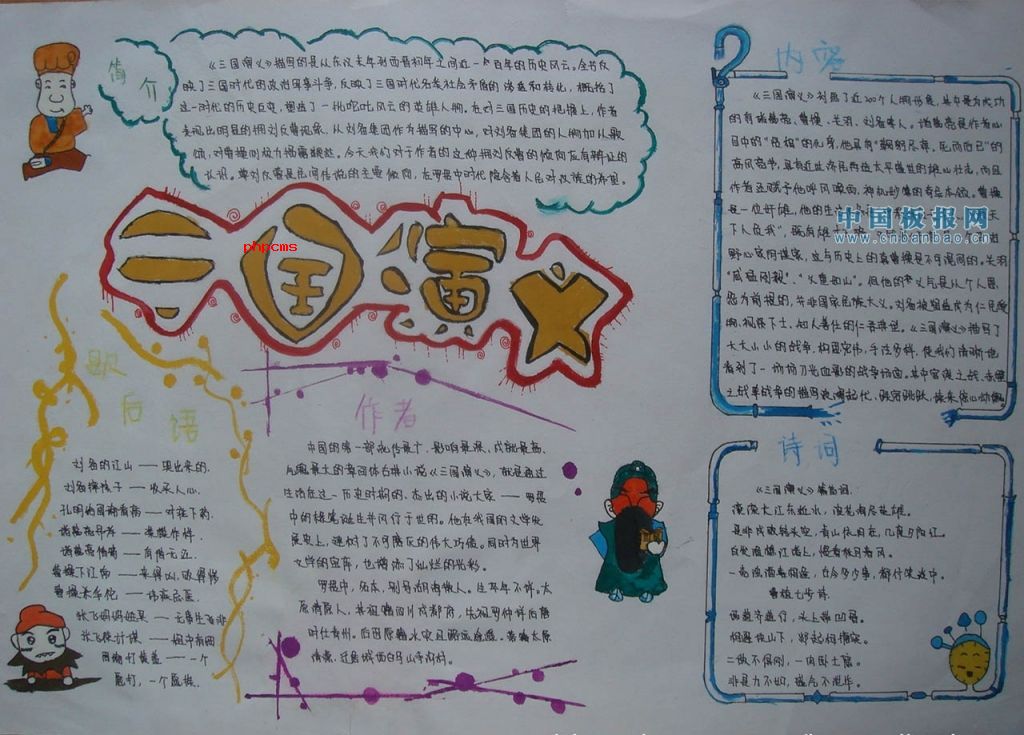 简介
《三国演义》描写的是从东汉末年到西晋初年之间近一百年的历史风云。全书反
映了三国时代的政治军事斗争，反映了三国时代各类社会矛盾的渗透和转化，概括了
这一时代的历史巨变，塑造了一批咤叱风云的英雄人物。在对三国历史的把握上，作者
表现出明显的拥刘反曹倾向，以刘备集团作为描写的中心，对刘备集团的人物加以歌
颂，对曹操则极力揭露鞭挞。今天我们对于作者的这种拥刘反曹的倾向应有辩证的
认识。尊刘反曹是民间传说的主要倾向，在罗贯中时代隐含着人民对汉族的希望。
三国演义
phpcms
内容
《三国演义》刻画了近200个人物形象，其中最为成功
的有诸葛亮、曹操、关羽、刘备等人。诸葛亮是作者心
目中的"贤相"的化身，他具有"鞠躬尽瘁，死而后已"的
高风亮节，具有近世济民再造太平盛世的雄心壮志，而且
作者还赋予他呼风唤雨、神机妙算的奇异本领。曹操
是一位奸雄，他的生
下人负我"，既有雄
野心家阴谋家，这与历史上的真曹操是不可混同的。关羽
"威猛刚毅"、"义重如山"。但他的义气是从个人恩
怨为前提的，并非国家民族大义。刘备被塑造成为仁民爱
物、礼贤下士、知人善任的仁君典型。《三国演义》描写了
大大小小的战争，构思宏伟，手法多样，使我们清晰地
看到了一场场刀光血影的战争场面。其中官渡之战、赤壁
之战等战争的描写波澜起伏、跌宕跳跃，读来惊心动魄。
中国板报网
www.cnbanbao.cn
歇后语
刘备的江山——哭出来的.
刘备摔孩子——收买人心.
孔明给周瑜看病——对症下药.
曹操下江南——来得凶，败得惨
张飞妈妈姓吴——无事生(吴氏)非
张飞使计谋——粗中有细
周瑜打黄盖——一个
愿打，一个愿挨.
作者
中国的第一部流传最广、影响最深、成就最高、
气魄最大的章回体白话小说《三国演义》，就是通过
生活在这一历史时期的、杰出的小说大家——罗贯
中的妙笔诞生并刊行于世的。他在我国的文学发
展史上，建树了不可磨灭的伟大巧绩。同时为世界
文学的宝库，也增添了灿烂的光彩。
罗贯中，名本，别号湖海散人。生卒年不详。太
原清源人，其祖籍四川成都府，先祖罗仲祥后唐
诗词
《三国演义》篇首词.
滚滚长江东逝水，浪花淘尽英雄。
是非成败转头空，青山依旧在，几度夕阳红。
白发渔樵江渚上，惯看秋月春风。
一壶浊酒喜相逢，古今多少事，都付笑谈中。
曹植七步诗.
两菇齐道行，头上带凹骨。
相遇块山下，郯起相搪突。
二敌不俱刚，一肉卧土窟。
非是力不如，盛气不泄毕。